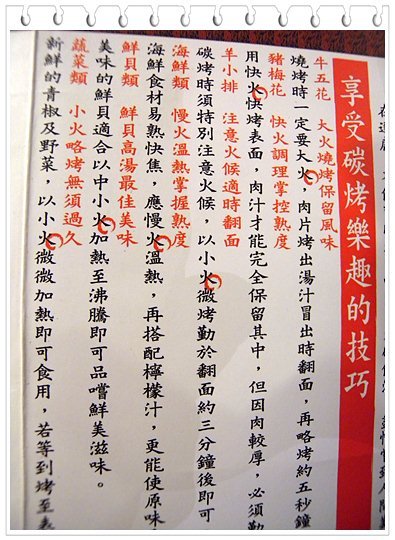 享受碳烤樂趣的技巧
牛五花 大火燒烤保留風味
燒烤時一定要大火，肉片烤出湯汁冒出時翻面，再略烤約五秒鐘
豬梅花 快火調理掌控熟度
用快火快烤表面，肉汁才能完全保留其中，但因肉較厚，必須勤
羊小排 注意火候適時翻面
碳烤時須特別注意火候，以小火微烤勤於翻面約三分鐘後即可
海鮮類 慢火溫熱掌握熟度
海鮮食材易熟快焦，應慢火溫熱，再搭配檸檬汁，更能使原味
鮮貝類 鮮貝高湯最佳美味
美味的鮮貝適合以中小火加熱至沸騰即可品嚐鮮美滋味。
蔬菜類 小火略烤無須過久
新鮮的青椒及野菜，以小火微微加熱即可食用，若等到烤至表